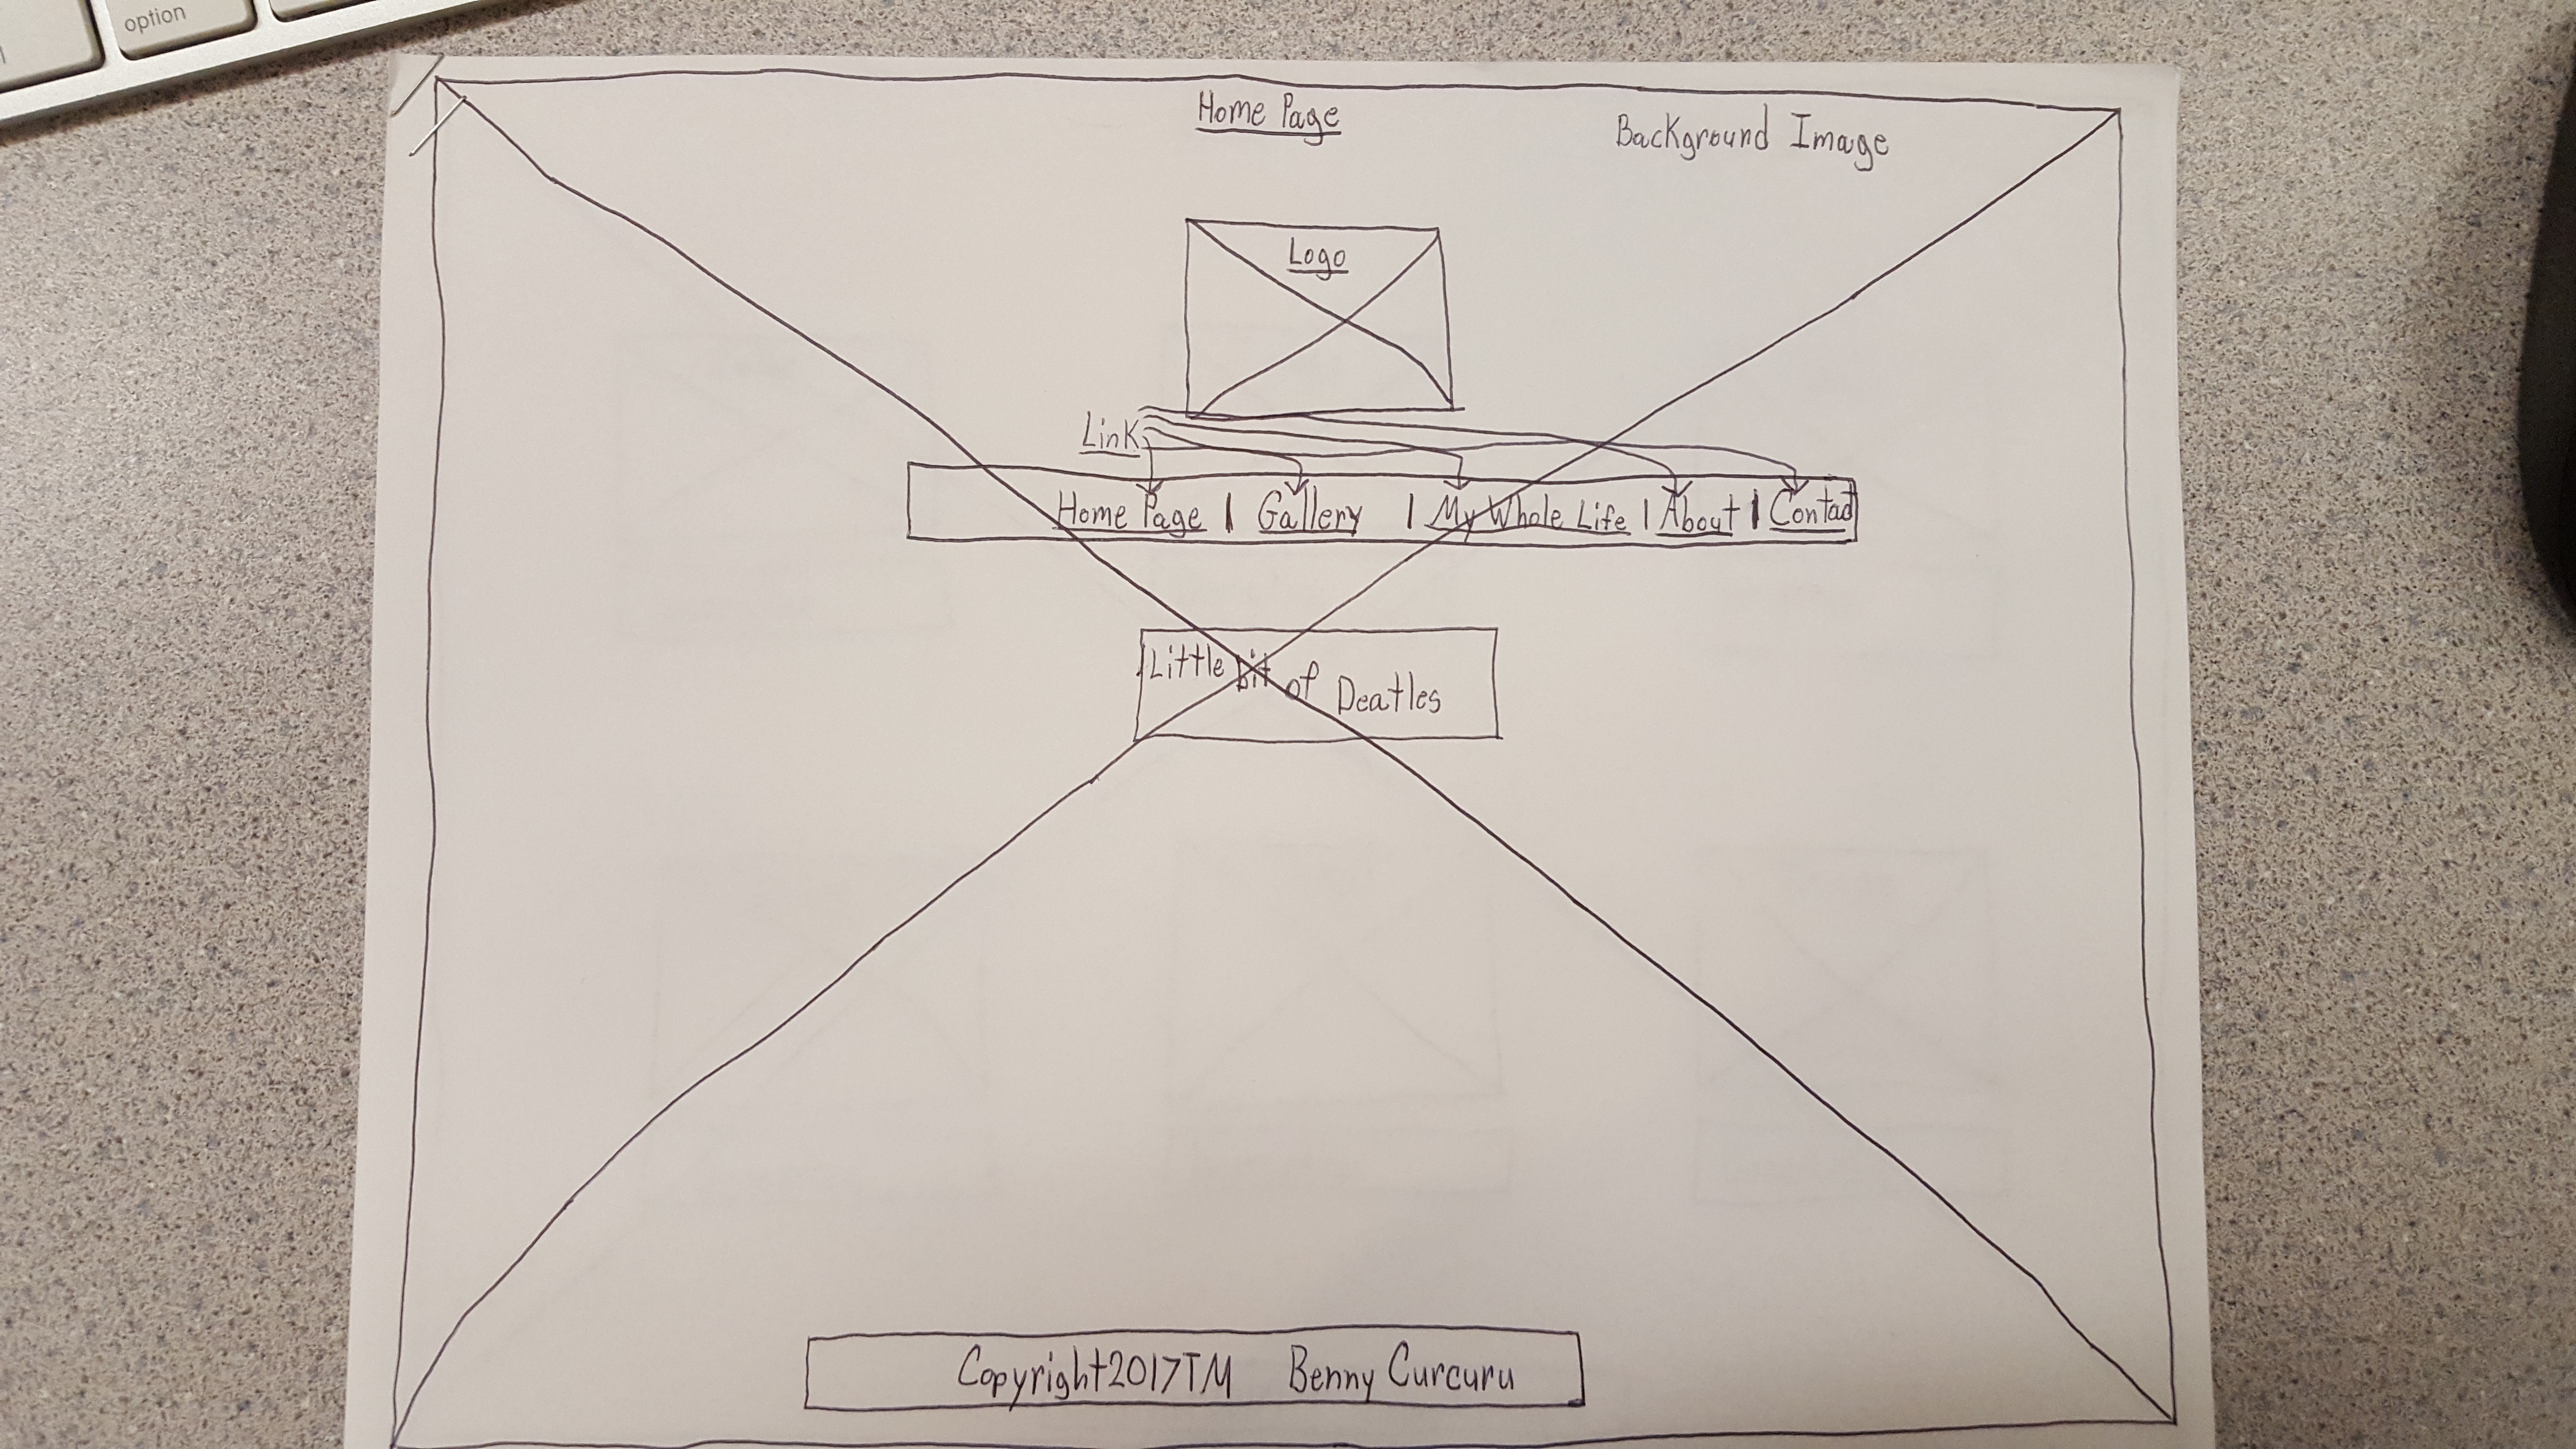 option
Home Page
Background Image
Logo
Link
Home Page | Gallery | My Whole Life | About | Contact
Little bit of Deatles
Copyright2017TM Benny Curcuru